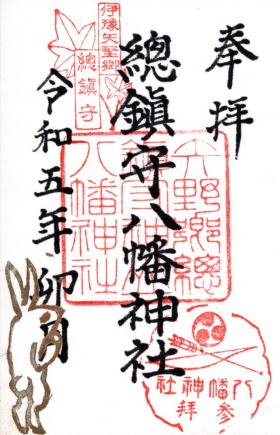 奉拝
總鎮守八幡神社
伊豫矢埜郷
總鎮守
令和五年 卯月
矢野郷總
八幡神社
八幡神社
参拝